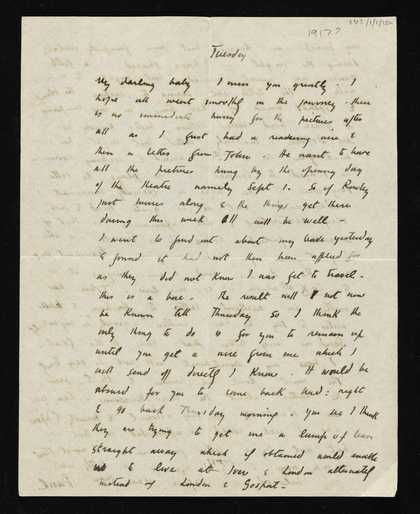 1917?
Tuesday
My darling baby I miss you greatly. I
hope all went smoothly on the journey - there
is no immediate hurry for the pictures after
all as I just had a wire &
then a letter from John. He want to have
all the pictures hung by the opening day
of the theatre namely Sept 1. So if Rowley
just hurries along & the things get there
during this week all will be well -
I went to find out about my leave yesterday
& found it had not then been applied for
as they did not know I was yet to travel -
this is a bore. The result will not now
be known till Thursday so I think the
only thing to do is for you to remain up
until you get a wire from me which I
will send off directly I know. It would be
absurd for you to come back Wed: night
& go back Thursday morning. You see I think
they are trying to get me a lump of leave
straight away which if obtained would enable
us to live at Iver & London alternately
instead of London & Gosport -